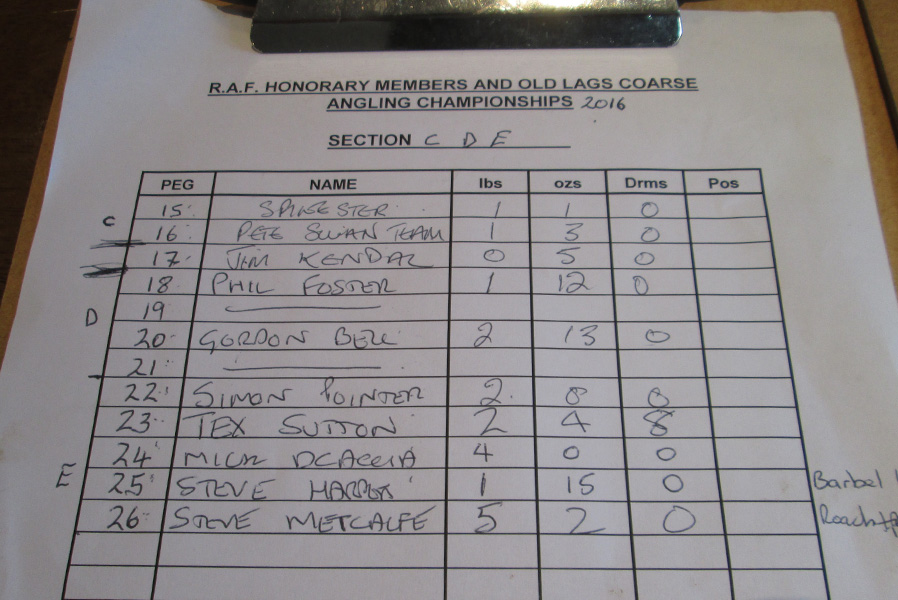 R.A.F. HONORARY MEMBERS AND OLD LAGS COARSE
ANGLING CHAMPIONSHIPS 2016
SECTION C D E
PEG NAME lbs ozs Drms Pos
C 15 1 1 0
16 PETE SWAN TEAM 1 3 0
17 JIM KENDAL 0 5 0
18 PHIL FOSTER 1 12 0
D 19
20 GORDON BELL 2 13 0
21
22 SIMON POINTER 2 0
23 TEX SUTTON 2 4 8
24 MICK 4 0 0
E 25 STEVE HARPER 1 15 0 Barbel
26 STEVE METCALFE 5 2 0 Roach